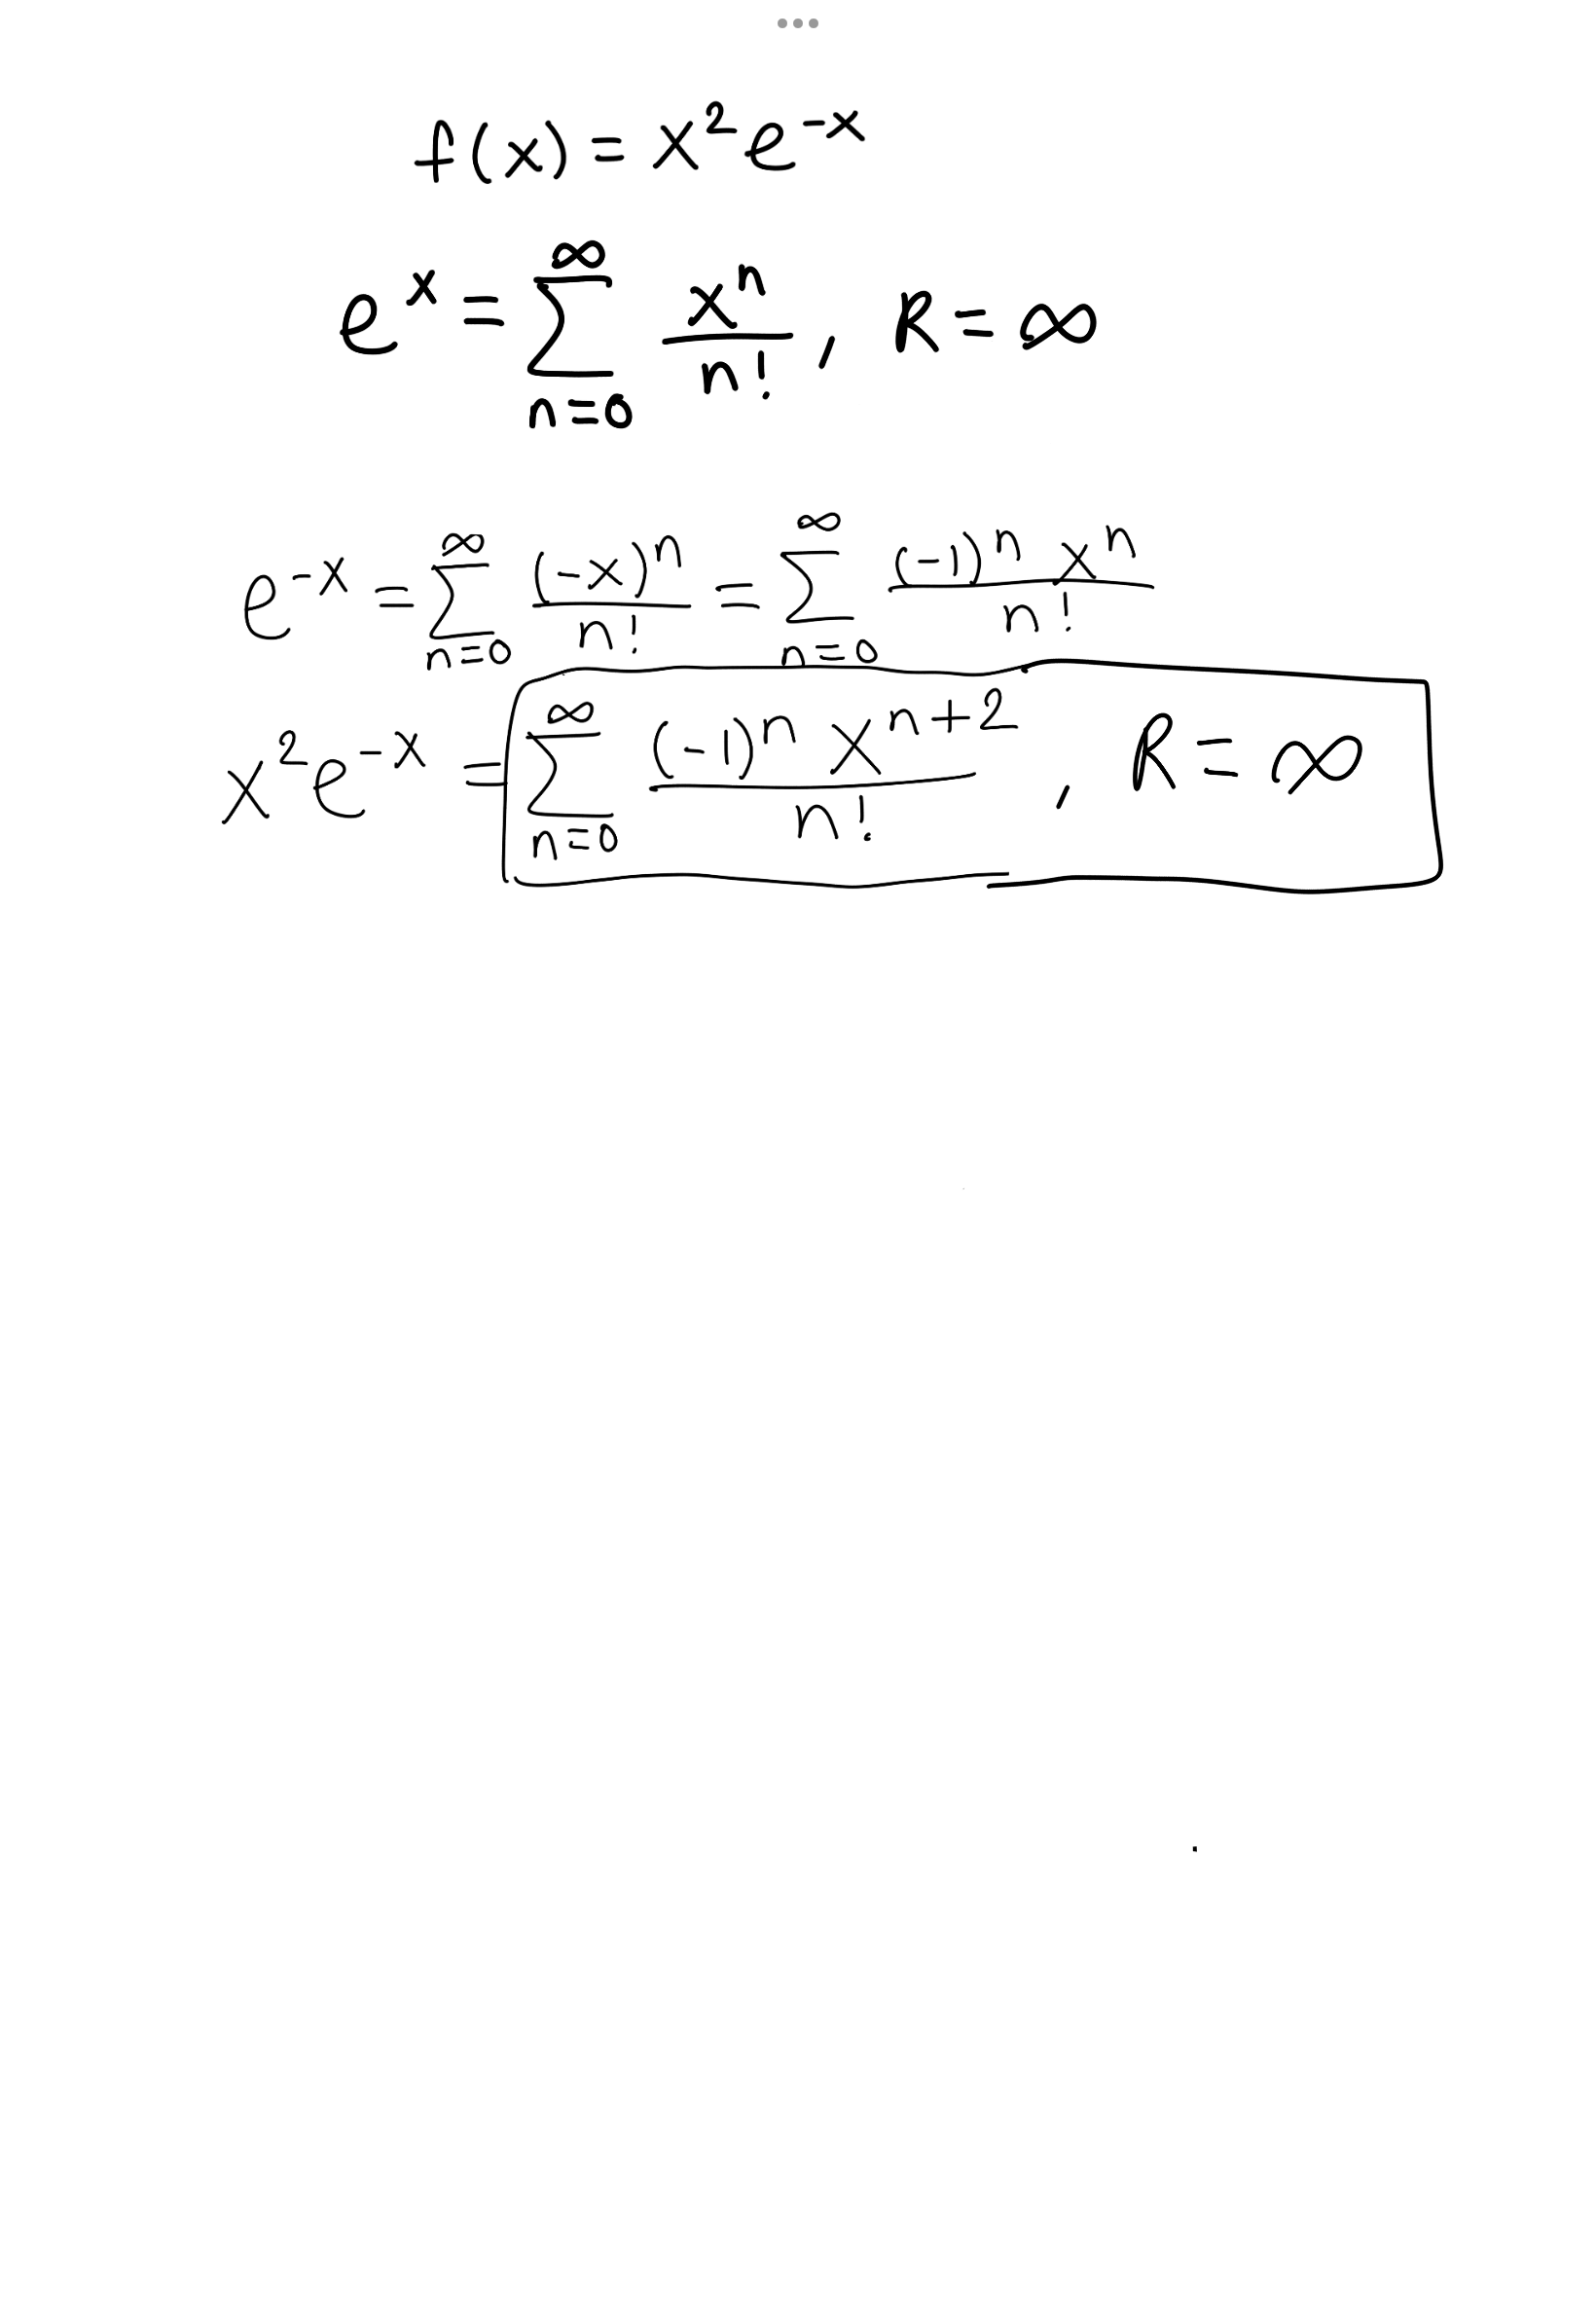 f(x) = x²e⁻ˣ
eˣ = ∑_{n=0}^{∞} xⁿ/n! , R = ∞
e⁻ˣ = ∑_{n=0}^{∞} (-x)ⁿ/n! = ∑_{n=0}^{∞} (-1)ⁿ xⁿ/n!
x²e⁻ˣ = ∑_{n=0}^{∞} (-1)ⁿ xⁿ⁺²/n! , R = ∞